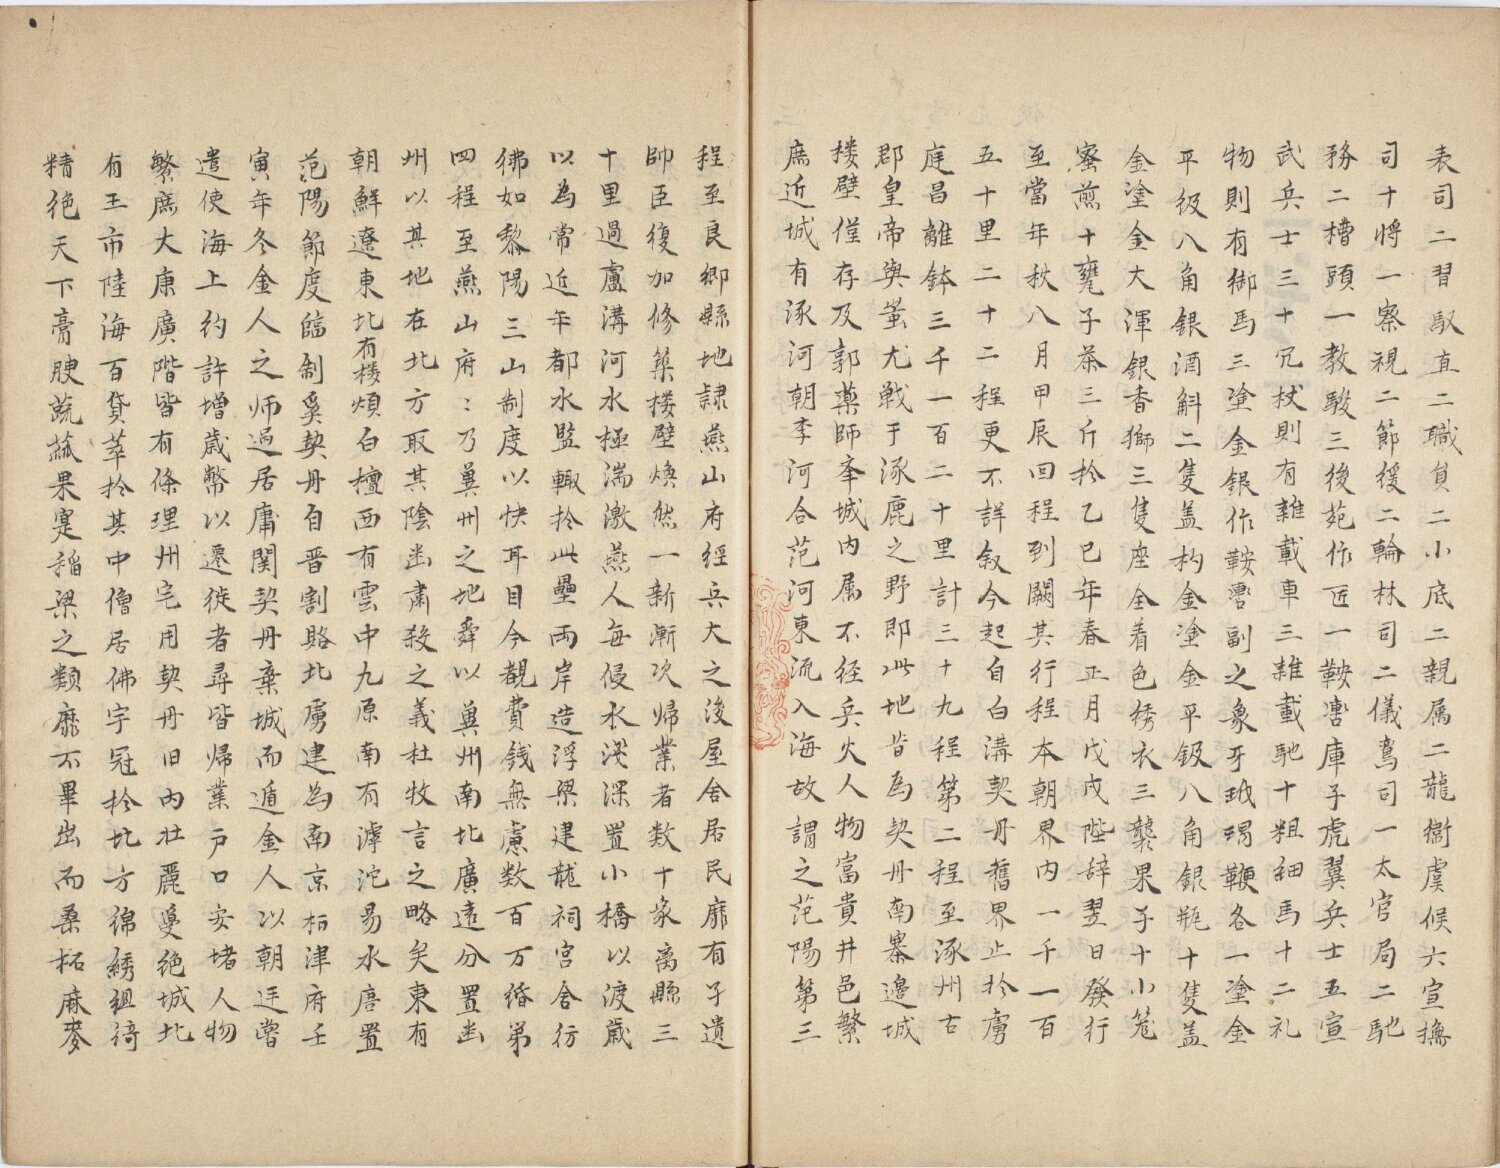 表司二習馭直二職員二小底二親属二龍衞虞候六宣撫
司十將一察視二節級二輪林司二儀鸾司一太官局二馳
務二槽頭一教駿三後苑作匠一鞍轡庫子虎翼兵士五宣
武兵士三十冗杖則有雜載車三雜載馳十粗細馬十二礼
物則有御馬三塗金銀作鞍轡副之象牙玳瑁鞭各一塗金
平级八角銀酒斛二隻盖杓金塗金平鈒八角銀瓶十隻盖
金塗金大渾銀香獅三隻座全着色綉衣三襲果子十小笼
蜜煎十甕子茶三斤扵乙巳年春正月戊戌陛辞翌日發行
至當年秋八月甲辰回程到闕其行程本朝界内一千一百
五十里二十二程更不詳叙今起自白溝契丹舊界止扵虜
庭昌離鉢三千一百二十里計三十九程第二程至涿州古
郡皇帝與蚩尤戦于涿鹿之野即此地皆為契丹南寨邉城
楼壁僅存及郭薬師举城内属不径兵火人物富貴井邑繁
庶近城有涿河朝李河合范河東流入海故謂之范陽第三
程至良鄉縣地隷燕山府經兵大之後屋舍居民靡有孑遺
帥臣復加修築楼壁煥然一新漸次帰業者数十家离縣三
十里過盧溝河水極湍激燕人每侵水浅深置小橋以渡歳
以為常近年都水監輙扵此壘両岸造浮梁建龍祠宫舍彷
彿如黎陽三山制度以快耳目今観費钱無慮数百万缗第
四程至燕山府〻乃兾州之地舜以兾州南北廣遠分置幽
州以其地在北方取其陰幽肅殺之義杜牧言之略矣東有
朝鮮遼東北有楼煩白檀西有雲中九原南有滹沱易水唐置
范陽節度臨制奚契丹自晋割賂北虜建為南京柝津府壬
寅年冬金人之师過居庸関契丹棄城而遁金人以朝廷嘗
遣使海上约許增歳幣以遷徙者尋皆帰業户口安堵人物
繁庶大康廣階皆有條理州宅用契丹旧内壮麗夐绝城北
有王市陸海百貨萃扵其中僧居佛宇冠扵北方绵綉组绮
精绝天下膏腴蔬蓏果寔稲梁之類靡不畢出而桑柘麻麥